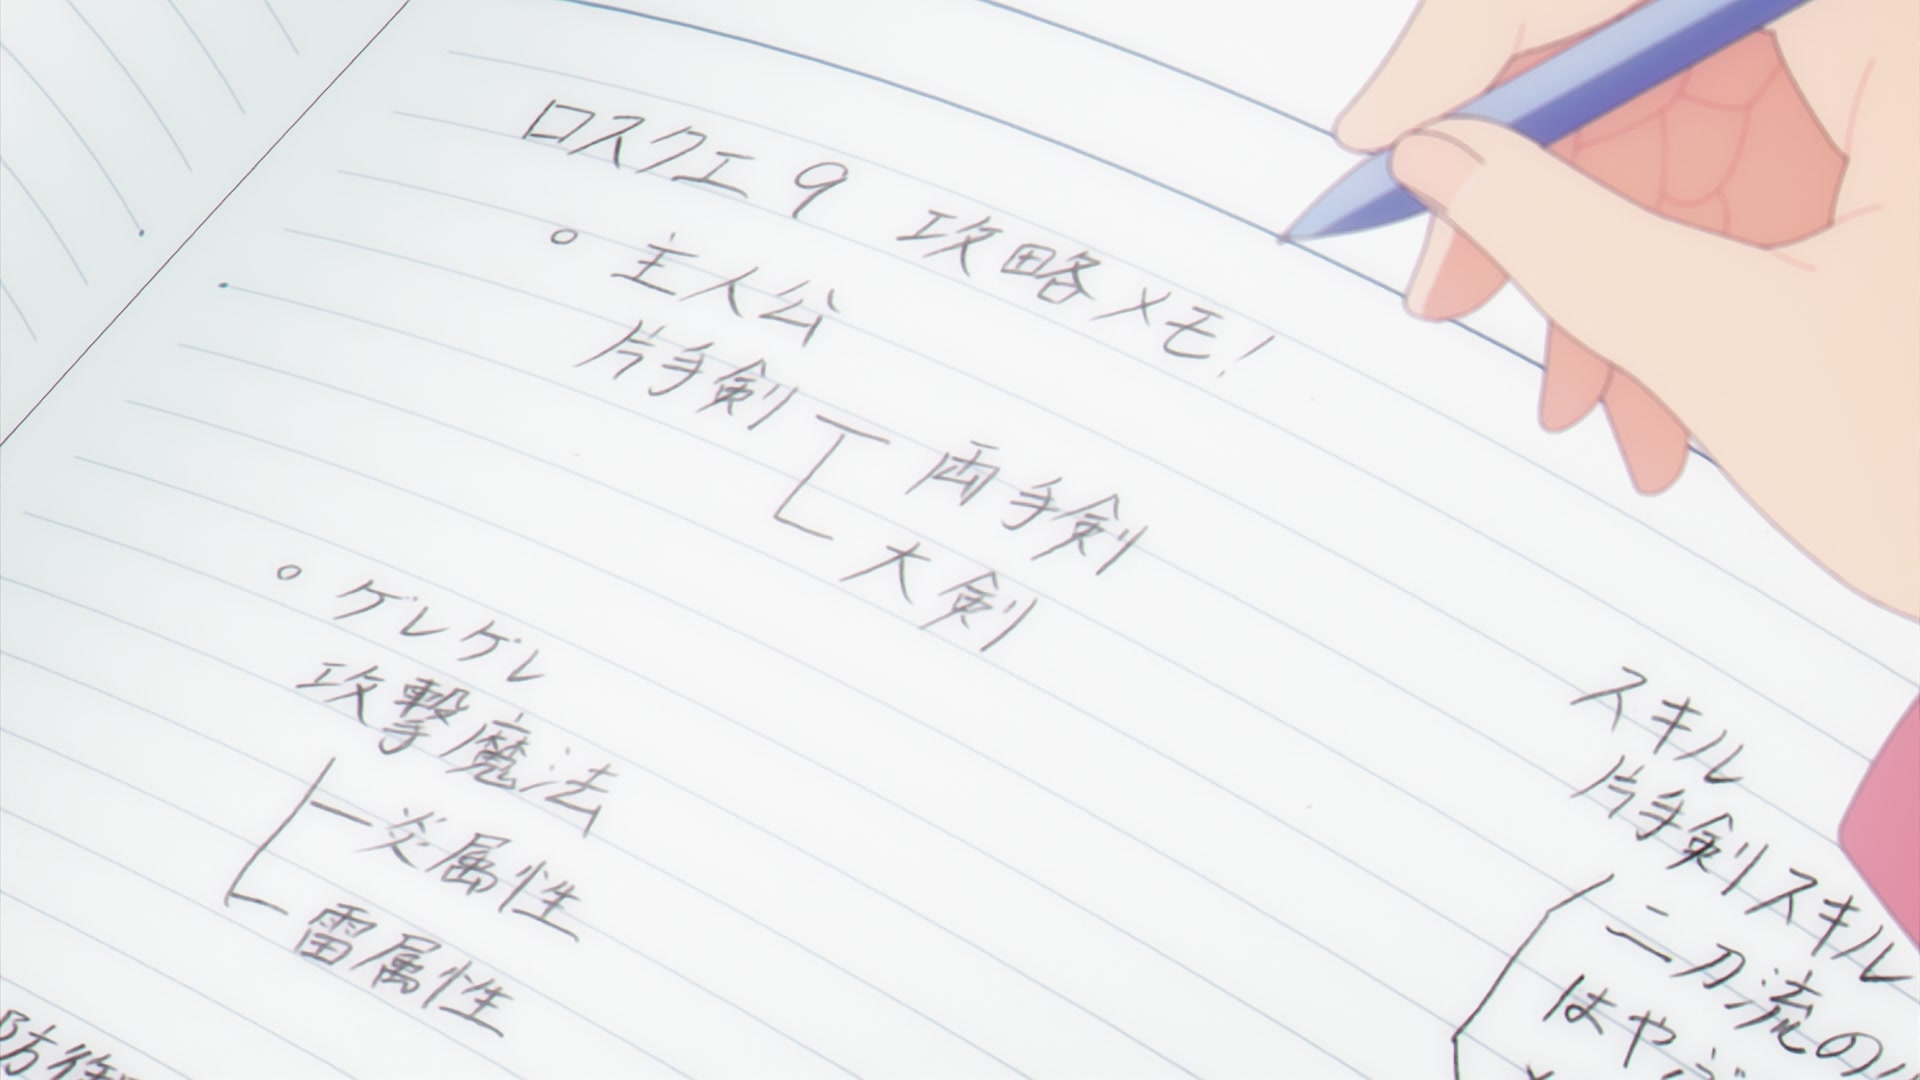 ロスクエ9 攻略メモ!
○ 主人公
片手剣
両手剣
大剣
○ ゲレゲレ
攻撃魔法
炎属性
雷属性
スキル
片手剣スキル
二刀流の
はや
防御